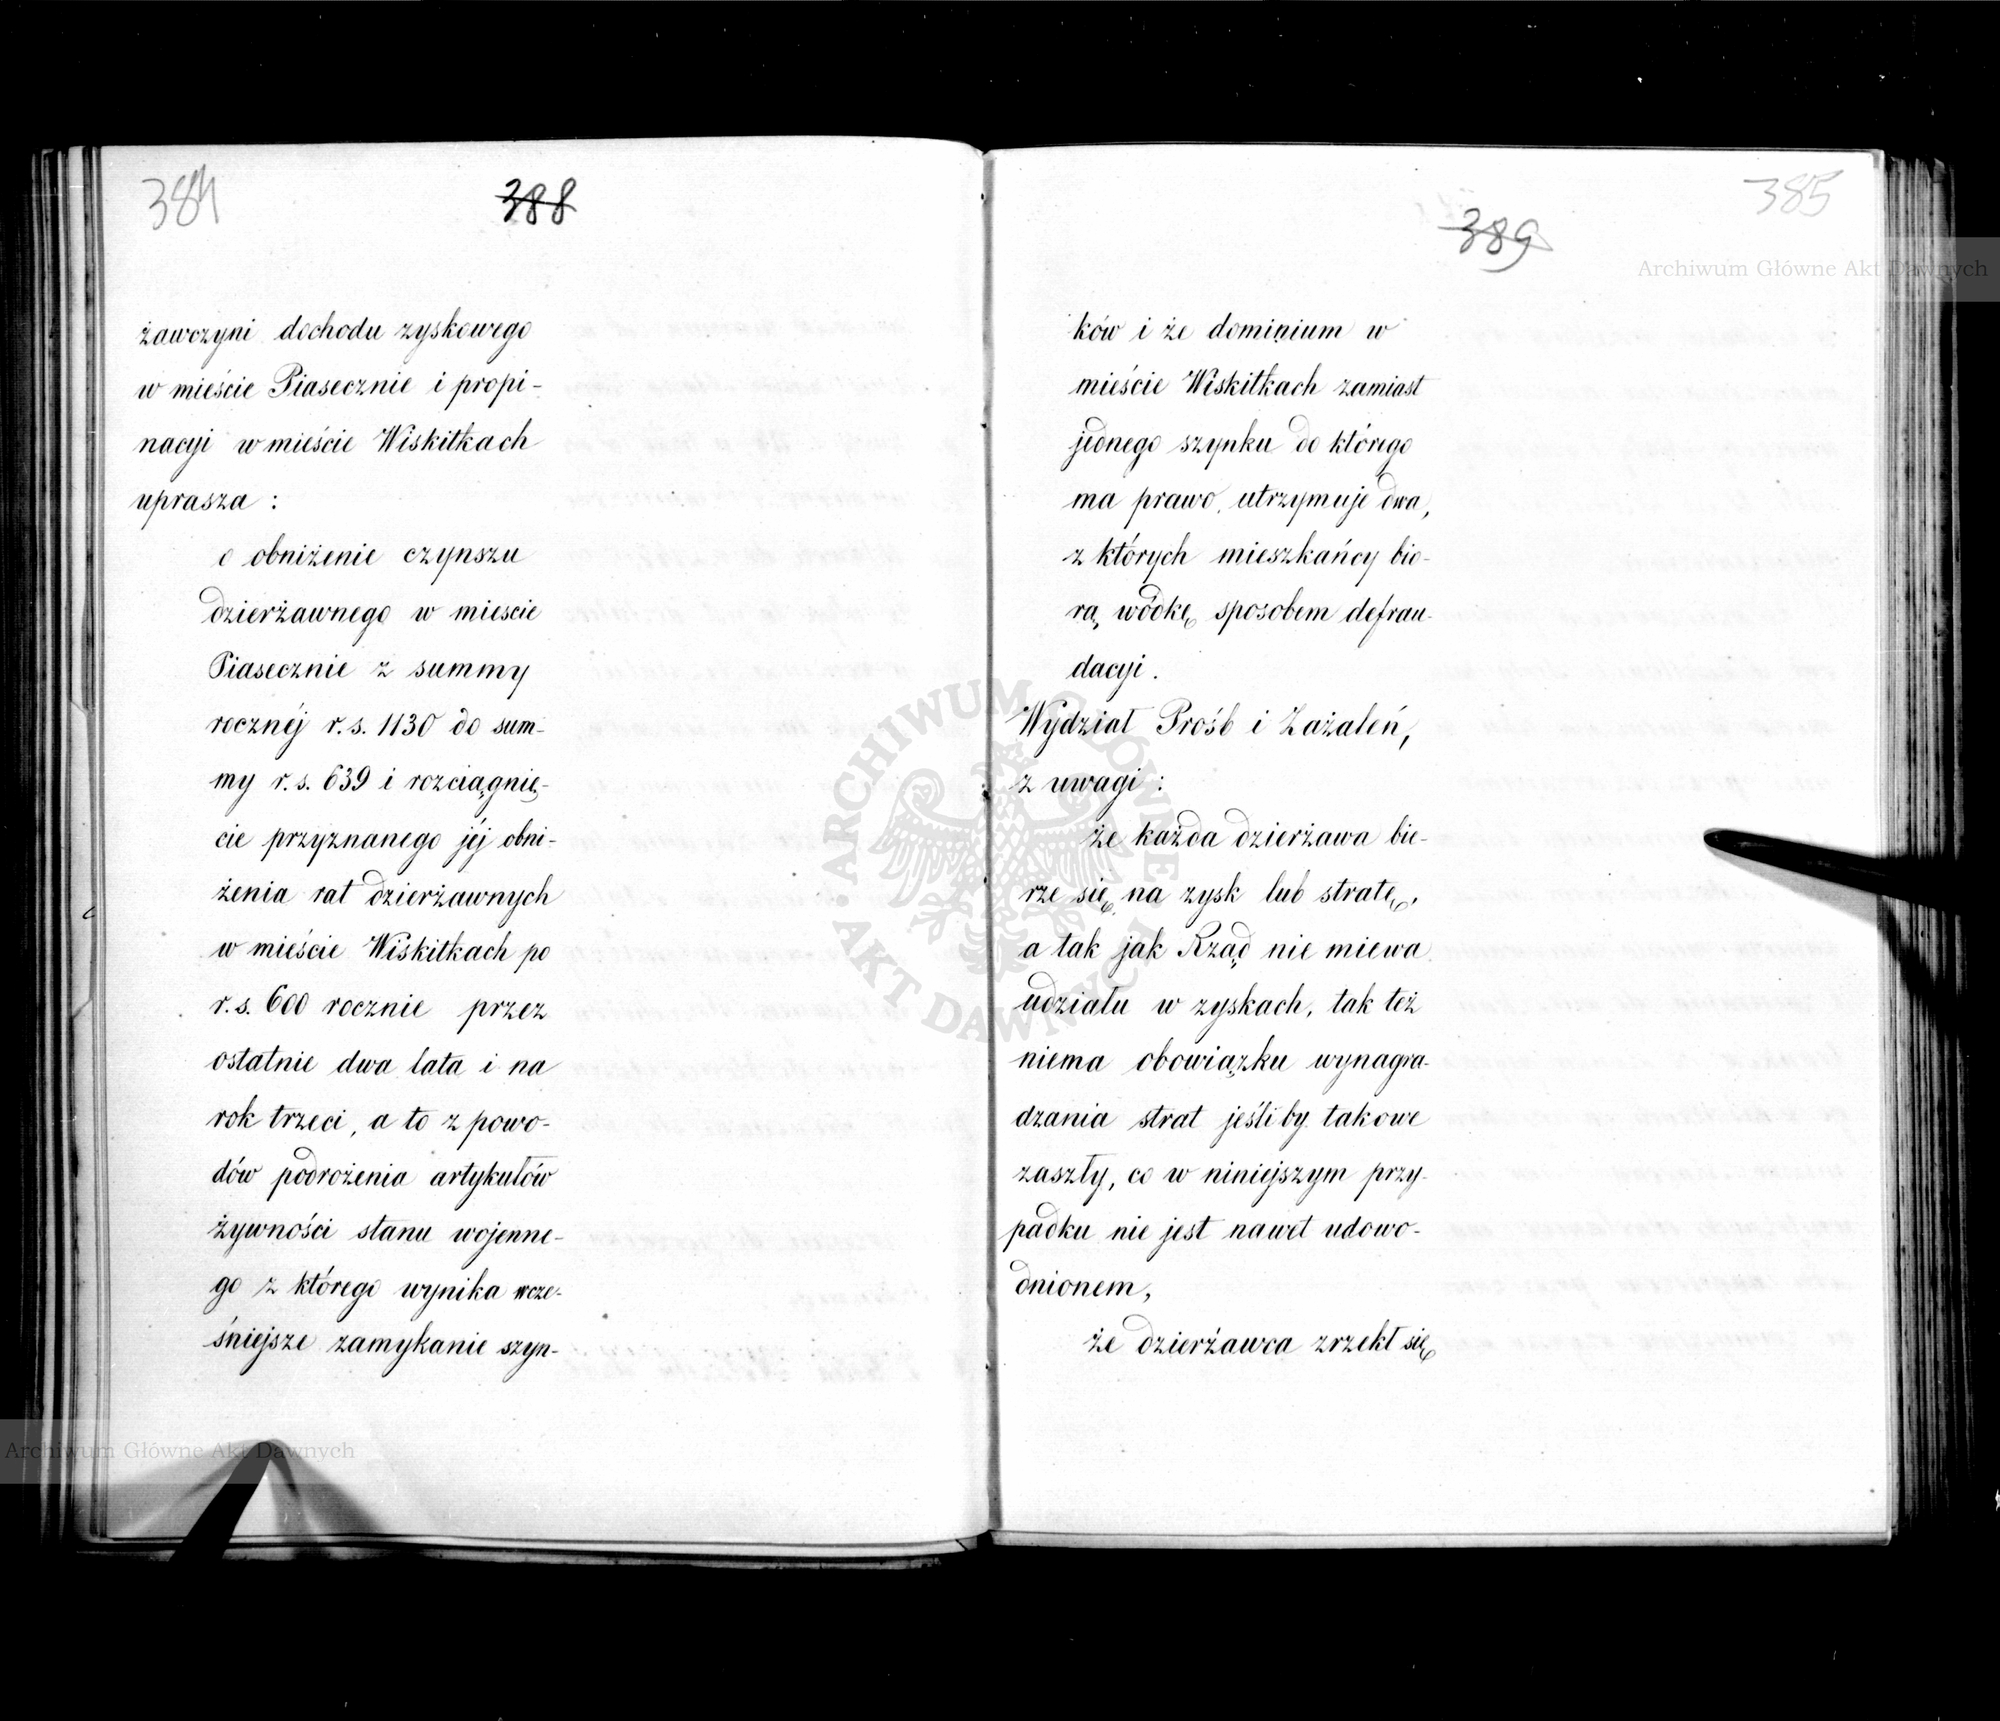 384
388
żawczyni dochodu zyskowego
w mieście Piasecznie i propi-
nacyi w mieście Wiskitkach
uprasza :
o obniżenie czynszu
dzierżawnego w miescie
Piasecznie z summy
rocznéj r. s. 1130 do sum-
my r. s. 639 i rozciągnię-
cie przyznanego jéj obni-
żenia rat dzierżawnych
w mieście Wiskitkach po
r. s. 600 rocznie przez
ostatnie dwa lata i na
rok trzeci, a to z powo-
dów podrożenia artykułów
żywności stanu wojenne-
go z którego wynika wcze-
śniejsze zamykanie szyn-
385
389
ków i że dominium w
mieście Wiskitkach zamiast
jednego szynku do którego
ma prawo, utrzymuje dwa,
z których mieszkańcy bio-
rą wódkę sposobem defrau-
dacyi.
Wydział Próśb i Zażaleń,
z uwagi :
że każda dzierżawa bie-
rze się na zysk lub stratę,
a tak jak Rząd nie miewa
udziału w zyskach, tak też
niema obowiązku wynagra-
dzania strat jeśliby takowe
zaszły, co w niniejszym przy-
padku nie jest nawet udowo-
dnionem,
że dzierżawca zrzekł się
Archiwum Główne Akt Dawnych
Archiwum Główne Akt Dawnych
ARCHIWUM GŁÓWNE AKT DAWNYCH